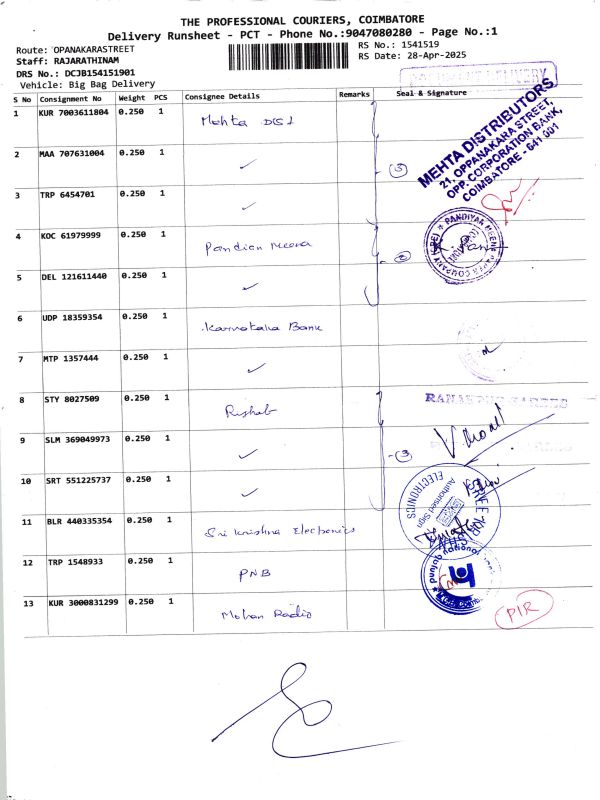 THE PROFESSIONAL COURIERS, COIMBATORE
Delivery Runsheet - PCT - Phone No.:9047080280 - Page No.:1
Route: OPANAKARASTREET
RS No.: 1541519
Staff: RAJARATHINAM
RS Date: 28-Apr-2025
DRS No.: DCJB154151901
Vehicle: Big Bag Delivery
S No Consignment No Weight PCS Consignee Details Remarks Seal & Signature
1 KUR 7003611804 0.250 1 Mehta Dist
2 MAA 707631004 0.250 1 ✓
3 TRP 6454701 0.250 1 ✓
(3)
MEHTA DISTRIBUTORS
21, OPPANAKARA STREET,
OPP. CORPORATION BANK,
COIMBATORE - 641 001
4 KOC 61979999 0.250 1 Pandian Meena
5 DEL 121611440 0.250 1 ✓
(2)
PANDIYAN MEENA PAPER COMPANY (CBE)
6 UDP 18359354 0.250 1 Karnataka Bank
7 MTP 1357444 0.250 1 ✓
8 STY 8027509 0.250 1 Rishab
9 SLM 369049973 0.250 1 ✓
10 SRT 551225737 0.250 1 ✓
(3)
11 BLR 440335354 0.250 1 Sri Krishna Electronics
ELECTRONICS
Authorised Sign
12 TRP 1548933 0.250 1 PNB
punjab national
13 KUR 3000831299 0.250 1 Mohan Radio
PIR